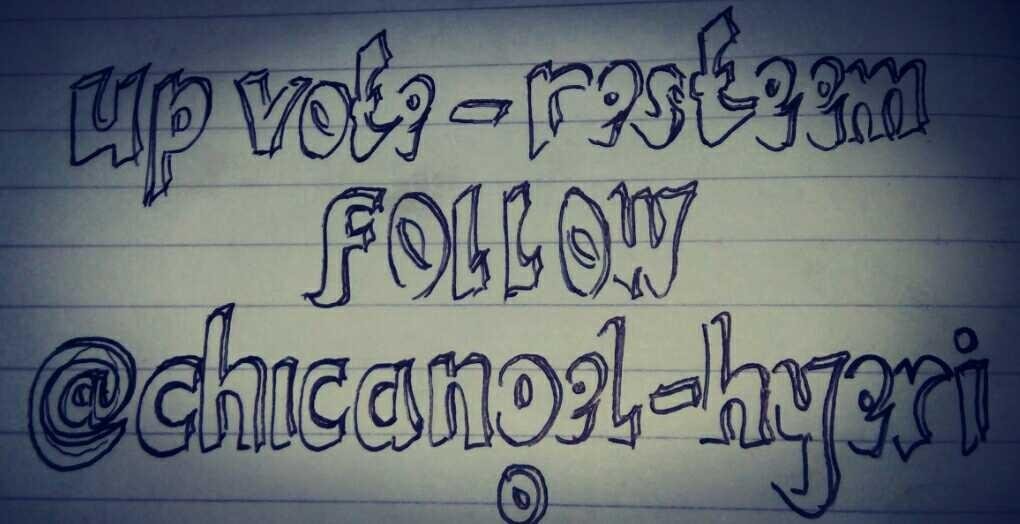 up vote - resteem
follow
@chicanoel-hyeri